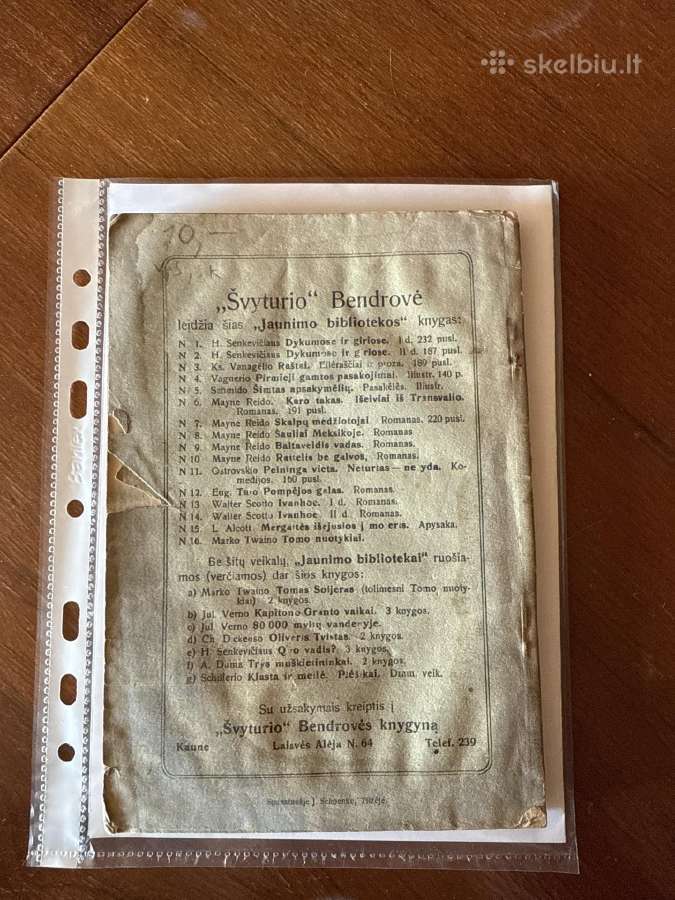 skelbiu.lt
10,—
„Švyturio" Bendrovė
leidžia šias „Jaunimo bibliotekos" knygas:
N 1. H. Senkevičiaus Dykumose ir giriose. I d. 232 pusl.
N 2. H. Senkevičiaus Dykumose ir giriose. II d. 187 pusl.
N 3. Ks. Vanagėlio Raštai. Eilėraščiai ir proza. 189 pusl.
N 4. Vagnerio Pirmieji gamtos pasakojimai. Iliustr. 140 p.
N 5. Schmido Šimtas apsakymėlių. Pasakėlės. Iliustr.
N 6. Mayne Reido. Karo takas. Išeiviai iš Transvalio.
Romanas. 191 pusl.
N 7. Mayne Reido Skalpų medžiotojai. Romanas. 220 pusl.
N 8. Mayne Reido Šauliai Meksikoje. Romanas
N 9. Mayne Reido Baltaveidis vadas. Romanas.
N 10. Mayne Reido Raitelis be galvos. Romanas.
N 11. Ostrovskio Pelninga vieta. Neturtas — ne yda. Ko-
medijos. 160 pusl.
N 12. Eug. Turo Pompėjos galas. Romanas.
N 13 Walter Scotto Ivanhoe. I d. Romanas.
N 14. Walter Scotto Ivanhoe II d. Romanas.
N 15. L. Alcott Mergaitės išėjusios į moteris. Apysaka.
N 16. Marko Twaino Tomo nuotykiai.
Be šitų veikalų, „Jaunimo bibliotekai" ruošia-
mos (verčiamos) dar šios knygos:
a) Marko Twaino Tomas Soijeras (tolimesni Tomo nuoty-
kiai) 2 knygos.
b) Jul. Verno Kapitono Granto vaikai. 3 knygos.
c) Jul Verno 80 000 mylių vandenyje.
d) Ch. Dickenso Oliveris Tvistas. 2 knygos.
e) H. Senkevičiaus Quo vadis? 3 knygos.
f) A. Duma Trys muškietininkai. 2 knygos.
g) Schillerio Klasta ir meilė. Plėšikai. Dram. veik.
Su užsakymais kreiptis į
„Švyturio" Bendrovės knygyną
Kaune Laisvės Alėja N. 64 Telef. 239
Spaustuvėje J. Schoenke, Tilžėje.
Bantex